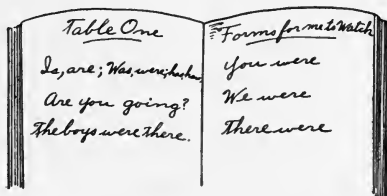 Table One
Is, are; Was, were; has, have,
Are you going?
The boys were there.
Forms for me to Watch
You were
We were
There were